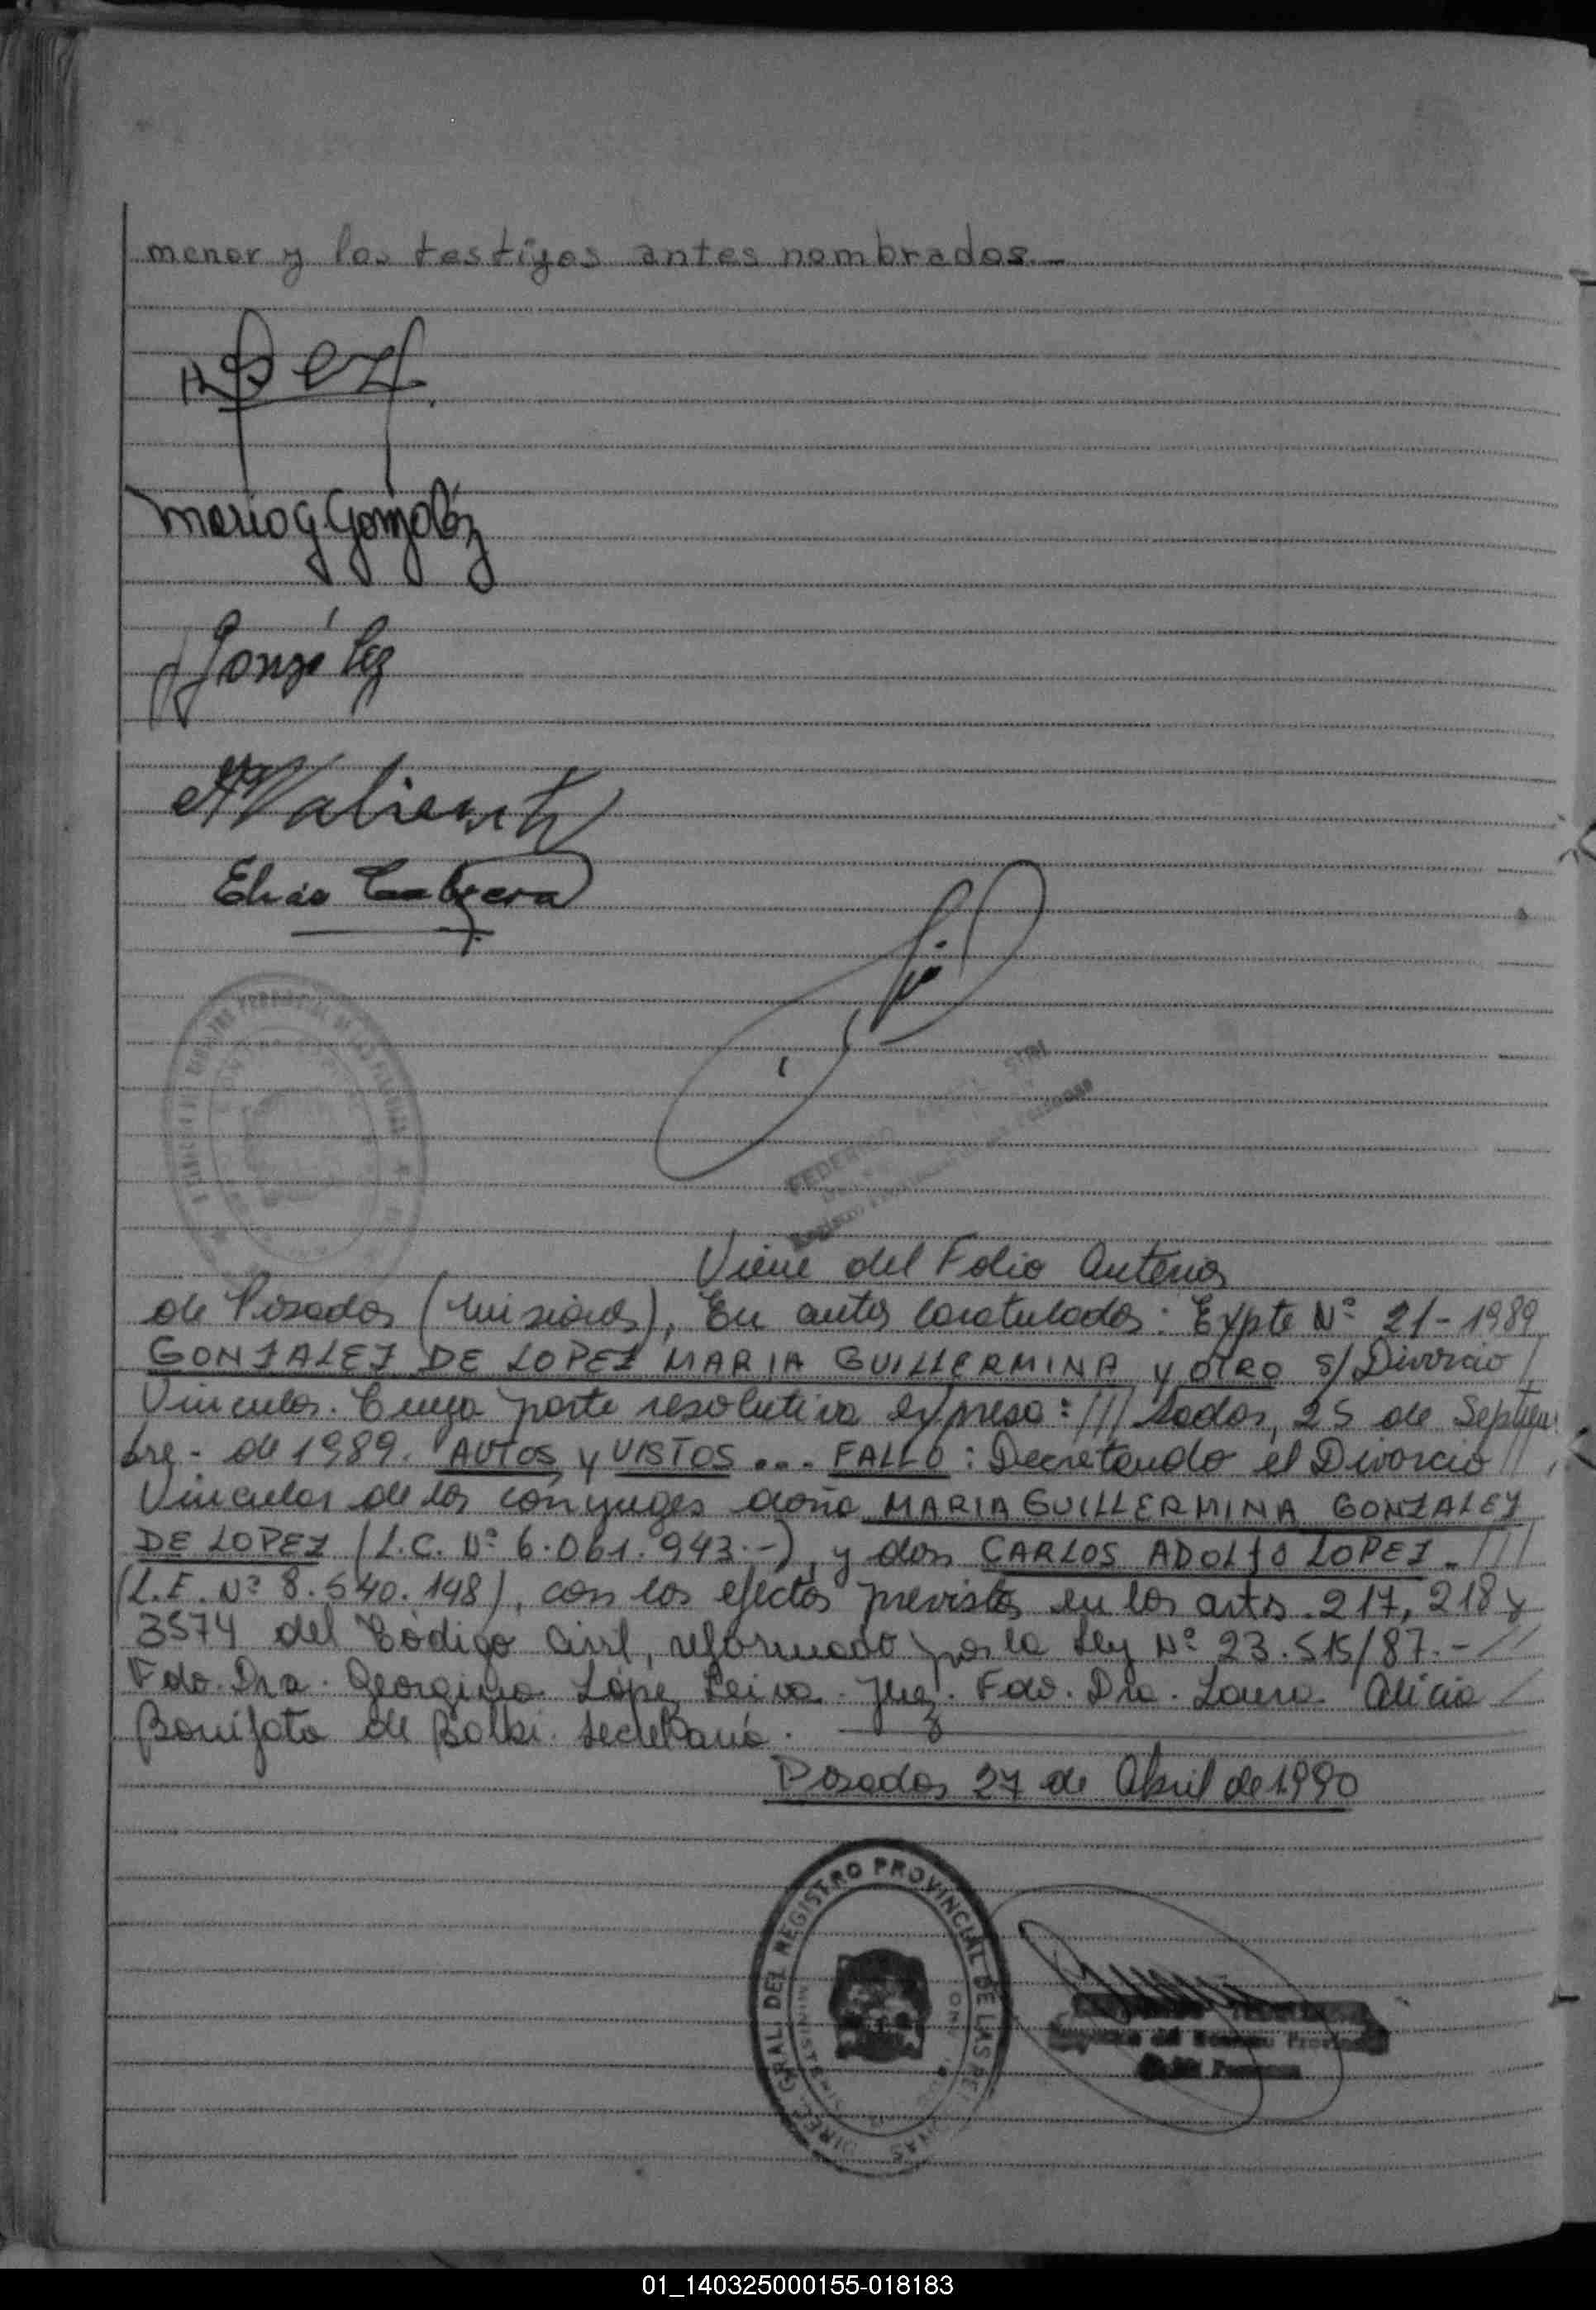 menor y los testigos antes nombrados.—
Maria G. González
González
Elias Cabrera
FEDERICO
Viene del Folio Anterior
de Posadas (Misiones), En autos caratulados: Expte Nº 21-1989
GONZALEZ DE LOPEZ MARIA GUILLERMINA y OTRO S/ Divorcio /
Vincular. Cuya parte resolutiva expresa: /// sadas, 25 de Septiem
bre - de 1989. AUTOS y VISTOS ... FALLO: Decretando el Divorcio //
Vincular de los cónyuges doña MARIA GUILLERMINA GONZALEZ
DE LOPEZ (L.C. Nº 6.061.943.-), y don CARLOS ADOLfO LOPEZ. ///
(L.E. Nº 8.540.148), con los efectos previstos en los arts. 217, 218 y
3574 del Código Civil, reformado por la Ley Nº 23.515/87.- //
Fdo. Dra. Georgina López Leiva. Juez. Fdo. Dra. Laura Alicia /
Bonifato de Balbi. Secretaria.
Posadas 27 de Abril de 1990
DIREC. GRAL. DEL REGISTRO PROVINCIAL DE LAS PERSONAS
01_140325000155-018183